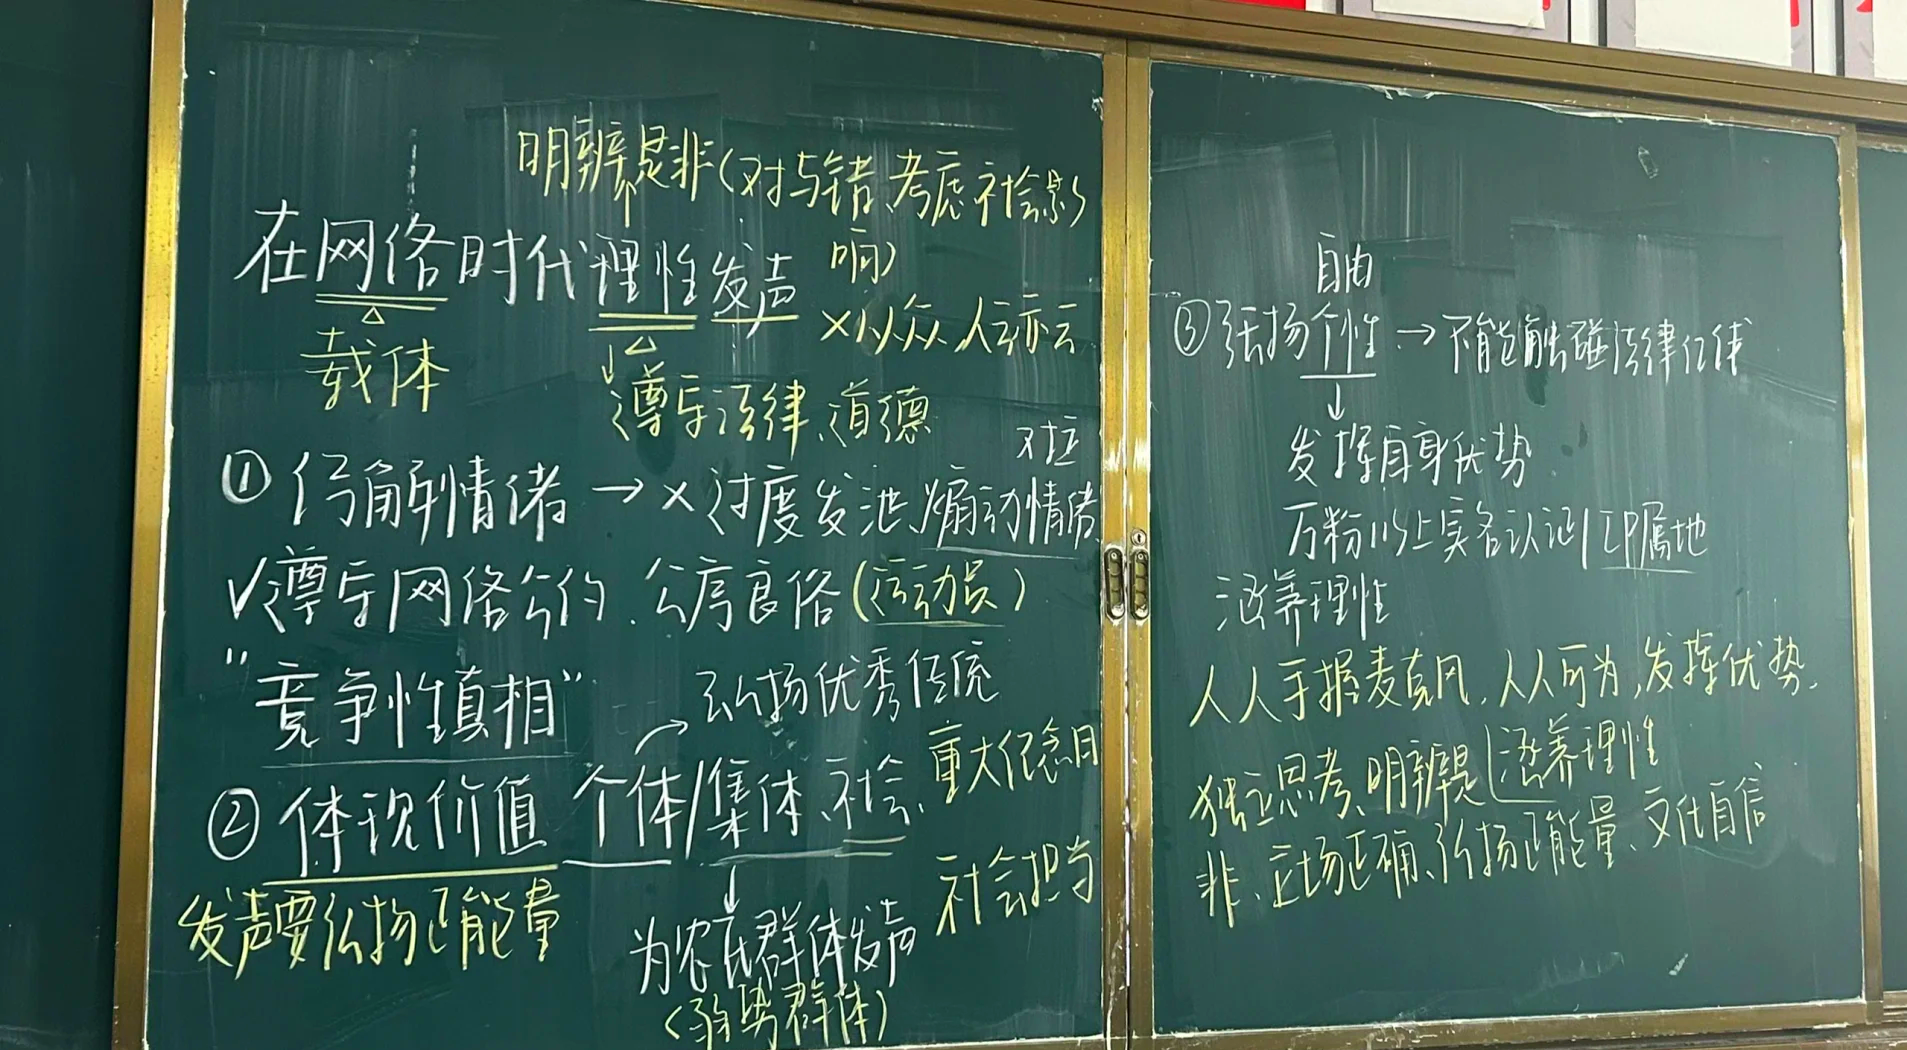 明辨是非(对与错、考虑社会影
响)
在网络时代理性发声
×从众 人云亦云
载体
遵守法律、道德
对立
①纾解情绪→×过度发泄、煽动情绪
✓遵守网络公约、公序良俗(运动员)
"竞争性真相"
弘扬优秀传统
②体现价值 个体/集体、社会、重大纪念日
发声要弘扬正能量
社会担当
为农民群体发声
(弱势群体)
自由
③张扬个性→不能触碰法律红线
发挥自身优势
万粉以上实名认证/IP属地
涵养理性
人人手握麦克风,人人可为,发挥优势、
独立思考、明辨是 涵养理性
非、立场正确、弘扬正能量、文化自信